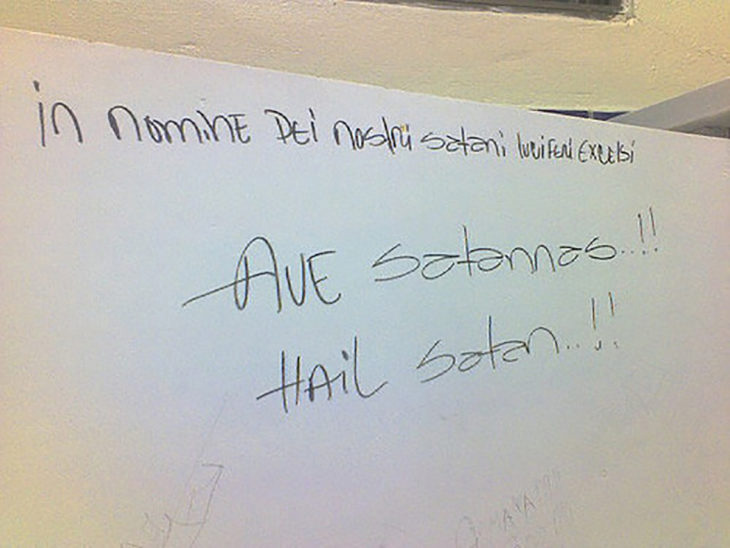 in nomine Dei nostri satani luciferi excelsi
AVE satannas..!!
HAIL satan..!!